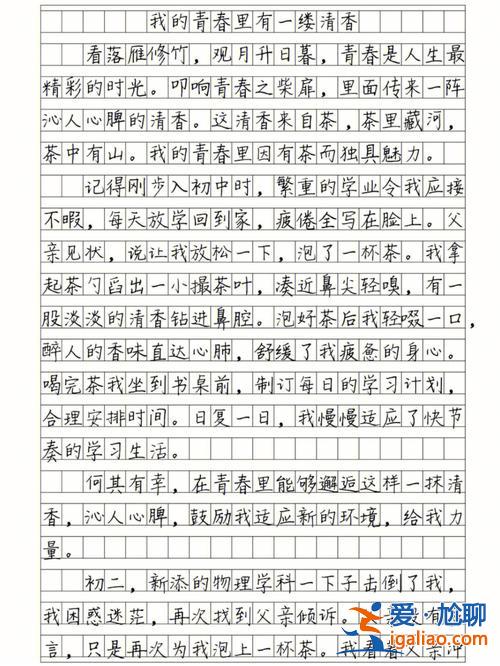 我的青春里有一缕清香
看落雁修竹，观月升日暮，青春是人生最
精彩的时光。叩响青春之柴扉，里面传来一阵
沁人心脾的清香。这清香来自茶，茶里藏河，
茶中有山。我的青春里因有茶而独具魅力。
记得刚步入初中时，繁重的学业令我应接
不暇，每天放学回到家，疲倦全写在脸上。父
亲见状，说让我放松一下，泡了一杯茶。我拿
起茶勺舀出一小撮茶叶，凑近鼻尖轻嗅，有一
股淡淡的清香钻进鼻腔。泡好茶后我轻啜一口，
醉人的香味直达心肺，舒缓了我疲惫的身心。
喝完茶我坐到书桌前，制订每日的学习计划，
合理安排时间。日复一日，我慢慢适应了快节
奏的学习生活。
何其有幸，在青春里能够邂逅这样一抹清
香，沁人心脾，鼓励我适应新的环境，给我力
量。
初二，新添的物理学科一下子击倒了我，
我困惑迷茫，再次找到父亲倾诉。没有
言，只是再次为我泡上一杯茶。我看着父亲冲
爱·尬聊
igaliao.com